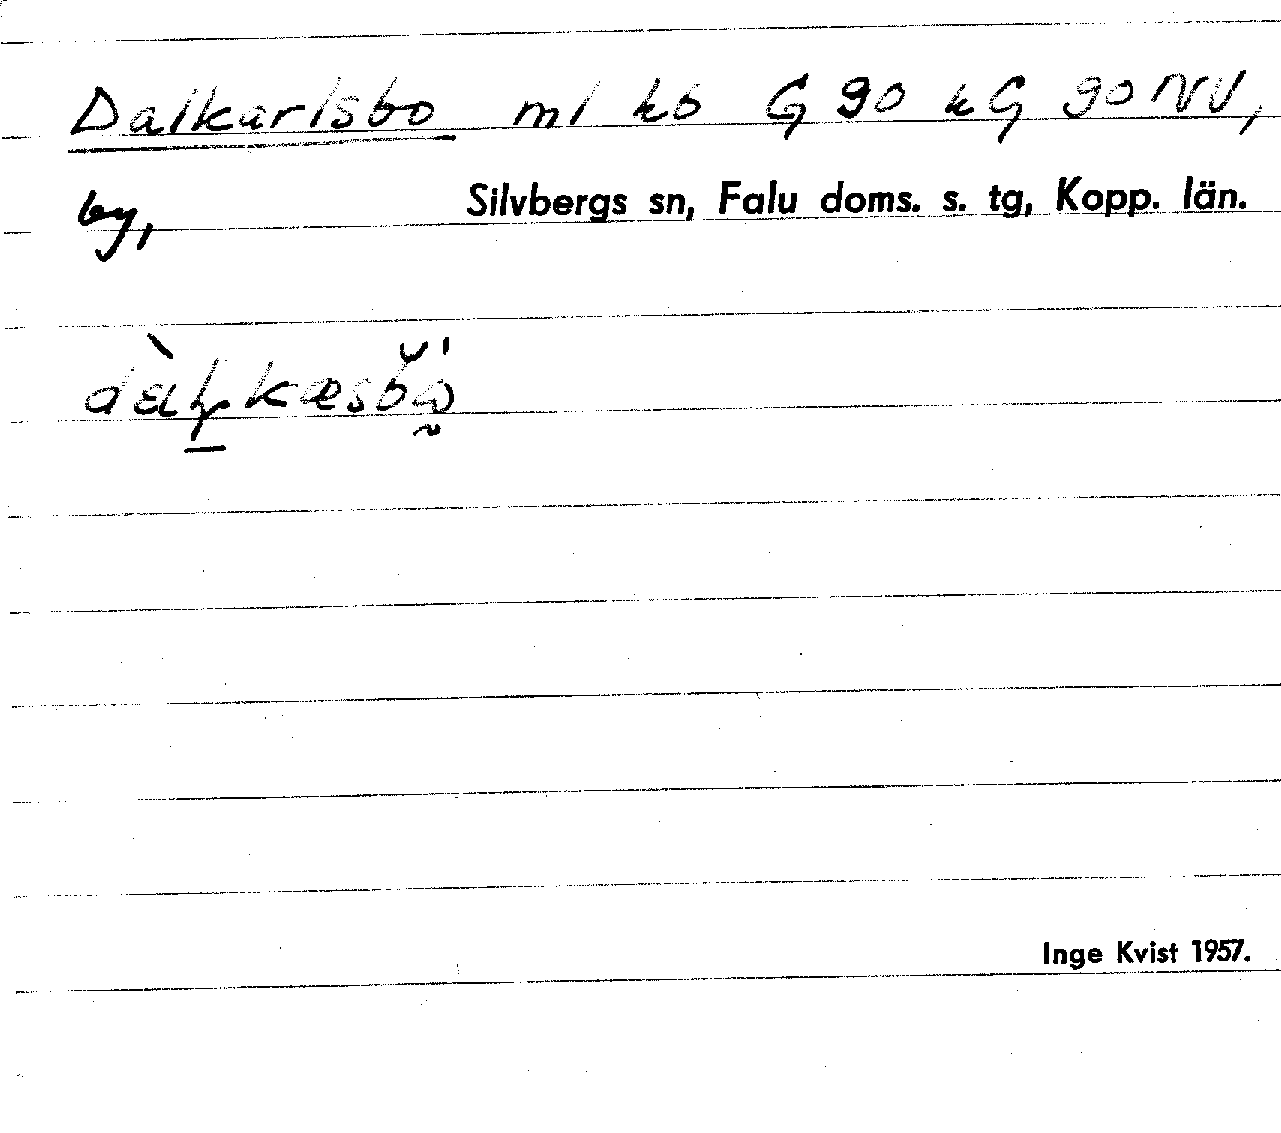 Dalkarlsbo ml kb G 90 k G 90 NV,
by, Silvbergs sn, Falu doms. s. tg, Kopp. län.
Inge Kvist 1957.